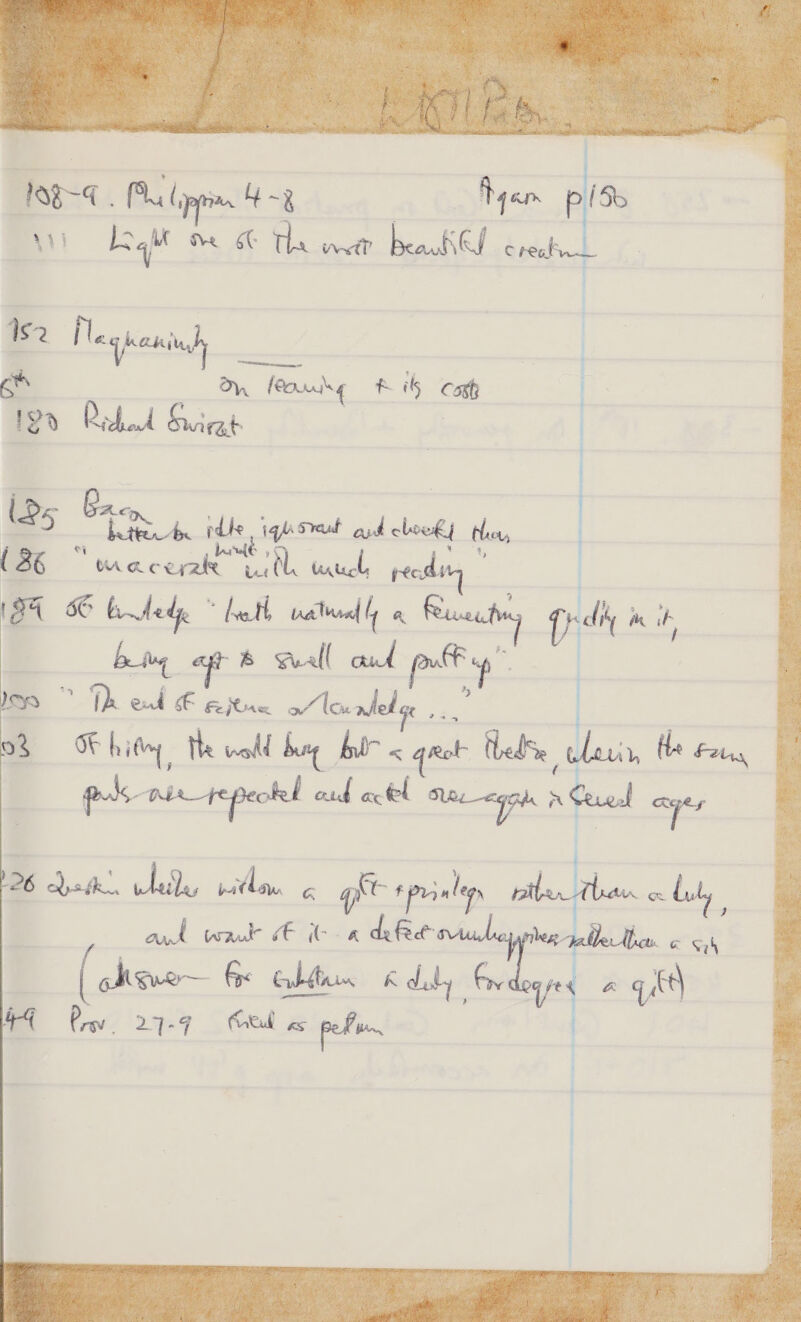 108-9. Philippian 4-8 Again p156
111 Light one of the most beautiful creatures
152 Magnanimity
6th On learning & its costs
180 Richard
185
better be idle, ignorant and cheerful than
186 "macerate himself with much reading"
189 of knowledge "hath naturally a fermenting quality in it,
being apt to swell and puff up".
"The end of knowledge ..."
03 Of history, the world being but a great theatre, wherein the same
parts are repeated and acted over again in several ages
126 Question whether wisdom a gift & privilege rather than a duty,
and want of it a defect or unhappiness rather than a sin
(answer for substance a duty, for degrees a gift)
49 Prov. 27-9 friend as perfume